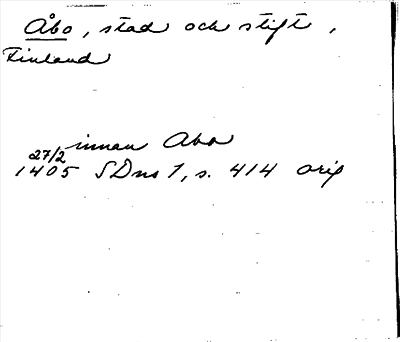 Åbo, stad och stift,
Finland
innan Abo
27/2
1405 SDns 1, s. 414 orig